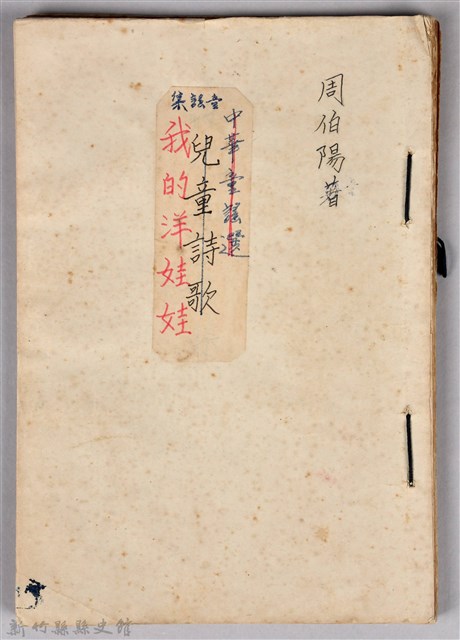 周伯陽著
中華童謠選
兒童詩歌
童謠集
我的洋娃娃
新竹縣縣史館